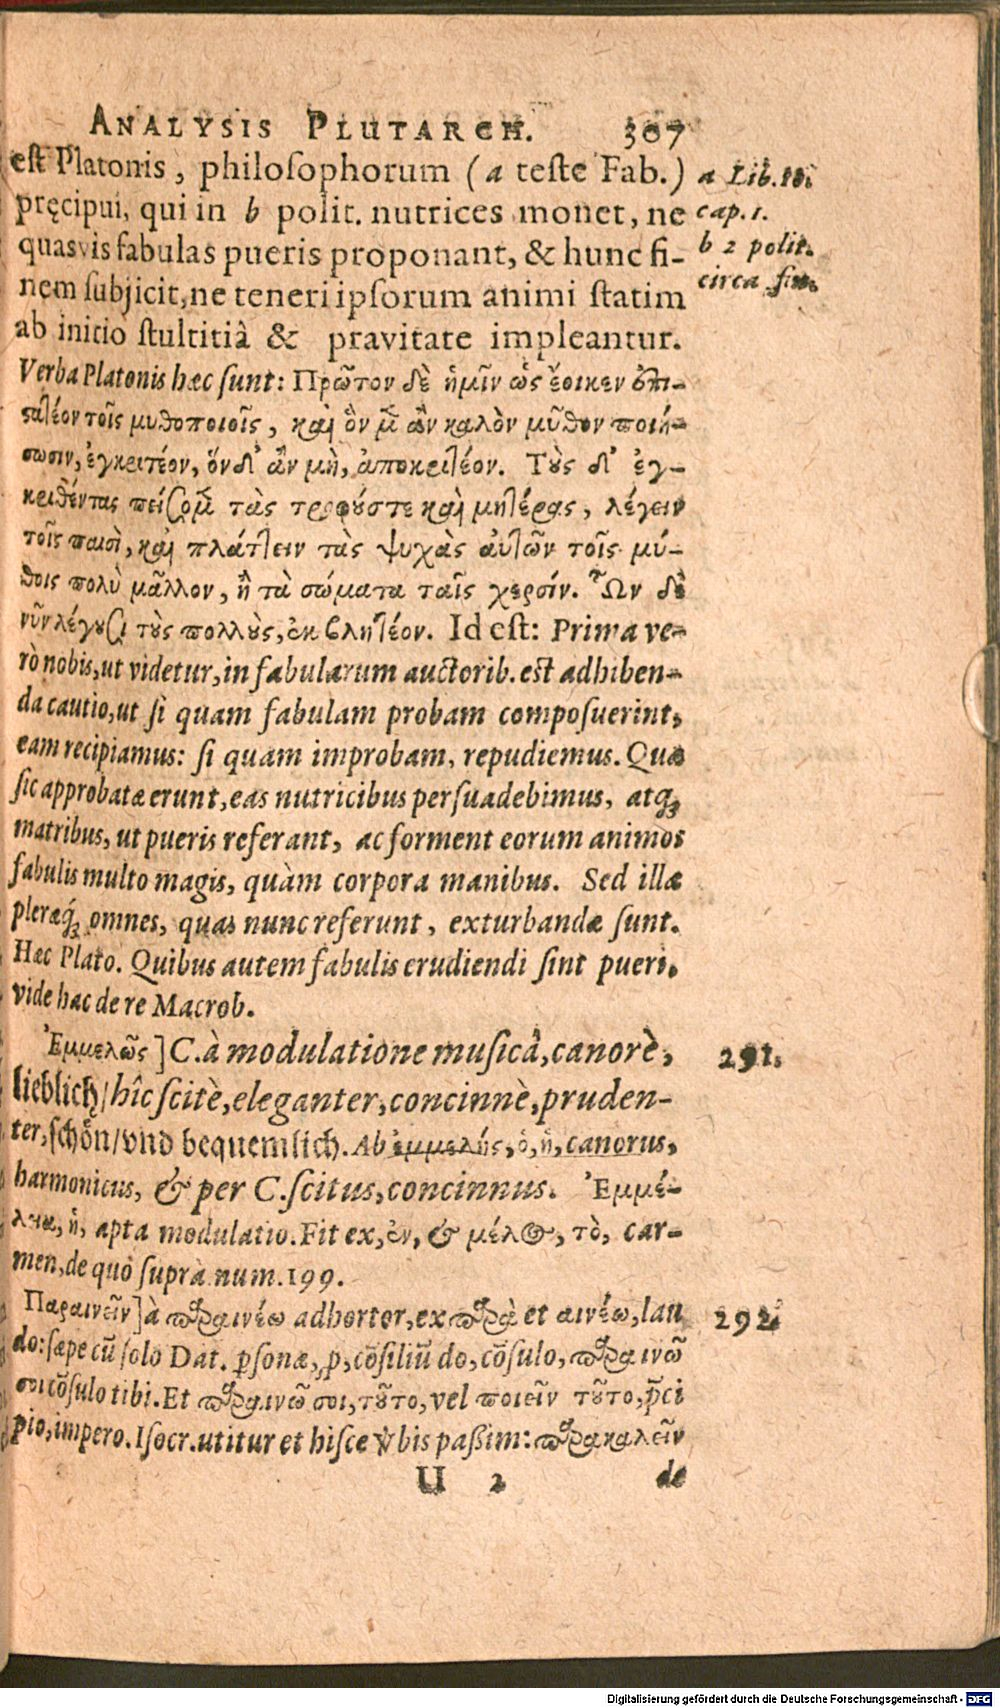 ANALYSIS PLUTARCH. 307
est Platonis, philosophorum (a teste Fab.)
pręcipui, qui in b polit. nutrices monet, ne
quasvis fabulas pueris proponant, & hunc fi-
nem subjicit, ne teneri ipsorum animi statim
ab initio stultitiâ & pravitate impleantur.
Verba Platonis hæc sunt: Πρῶτον δὲ ἡμῖν ὡς ἔοικεν ἐπι-
στατέον τοῖς μυθοποιοῖς, καὶ ὃν μὲν ἂν καλὸν μῦθον ποιή-
σωσιν, ἐγκριτέον, ὅν δ' ἂν μὴ, ἀποκριτέον. Τοὺς δ' ἐγ-
κριθέντας πείσομεν τὰς τροφούστε καὶ μητέρας, λέγειν
τοῖς παισὶ, καὶ πλάττειν τὰς ψυχὰς αὐτῶν τοῖς μύ-
θοις πολὺ μᾶλλον, ἢ τὰ σώματα ταῖς χερσίν. Ὧν δὲ
νῦν λέγουσι τοὺς πολλοὺς, ἐκβλητέον. Id est: Prima ve-
rò nobis, ut videtur, in fabularum auctorib. est adhiben-
da cautio, ut si quam fabulam probam composuerint,
eam recipiamus: si quam improbam, repudiemus. Quæ
sic approbatæ erunt, eas nutricibus persuadebimus, atq;
matribus, ut pueris referant, ac forment eorum animos
fabulis multo magis, quàm corpora manibus. Sed illæ
pleræq; omnes, quas nunc referunt, exturbandæ sunt.
Hæc Plato. Quibus autem fabulis erudiendi sint pueri,
vide hac de re Macrob.
Ἐμμελῶς] C. à modulatione musicâ, canorè,
lieblich/ hîc scitè, eleganter, concinnè, pruden-
ter, schön/ vnd bequemlich. Ab ἐμμελής, ὁ, ἡ, canorus,
harmonicus, & per C. scitus, concinnus. Ἐμμέ-
λεια, ἡ, apta modulatio. Fit ex, ἐν, & μέλος, τὸ, car-
men, de quo suprà num. 199.
Παραινεῖν] à παραινέω adhortor, ex παρὰ et αινέω, lau
do: sæpe cū solo Dat. p̱sonæ, p̱, cōsiliū do, cōsulo, παραινῶ
σοι cōsulo tibi. Et παραινῶ σοι, τοῦτο, vel ποιεῖν τοῦτο, p̄ci
pio, impero. Isocr. utitur et hisce v̄bis paßim: παρακαλεῖν
U 2 de
a Lib. 11.
cap. 1.
b 2 polit.
circa fin.
291.
292.